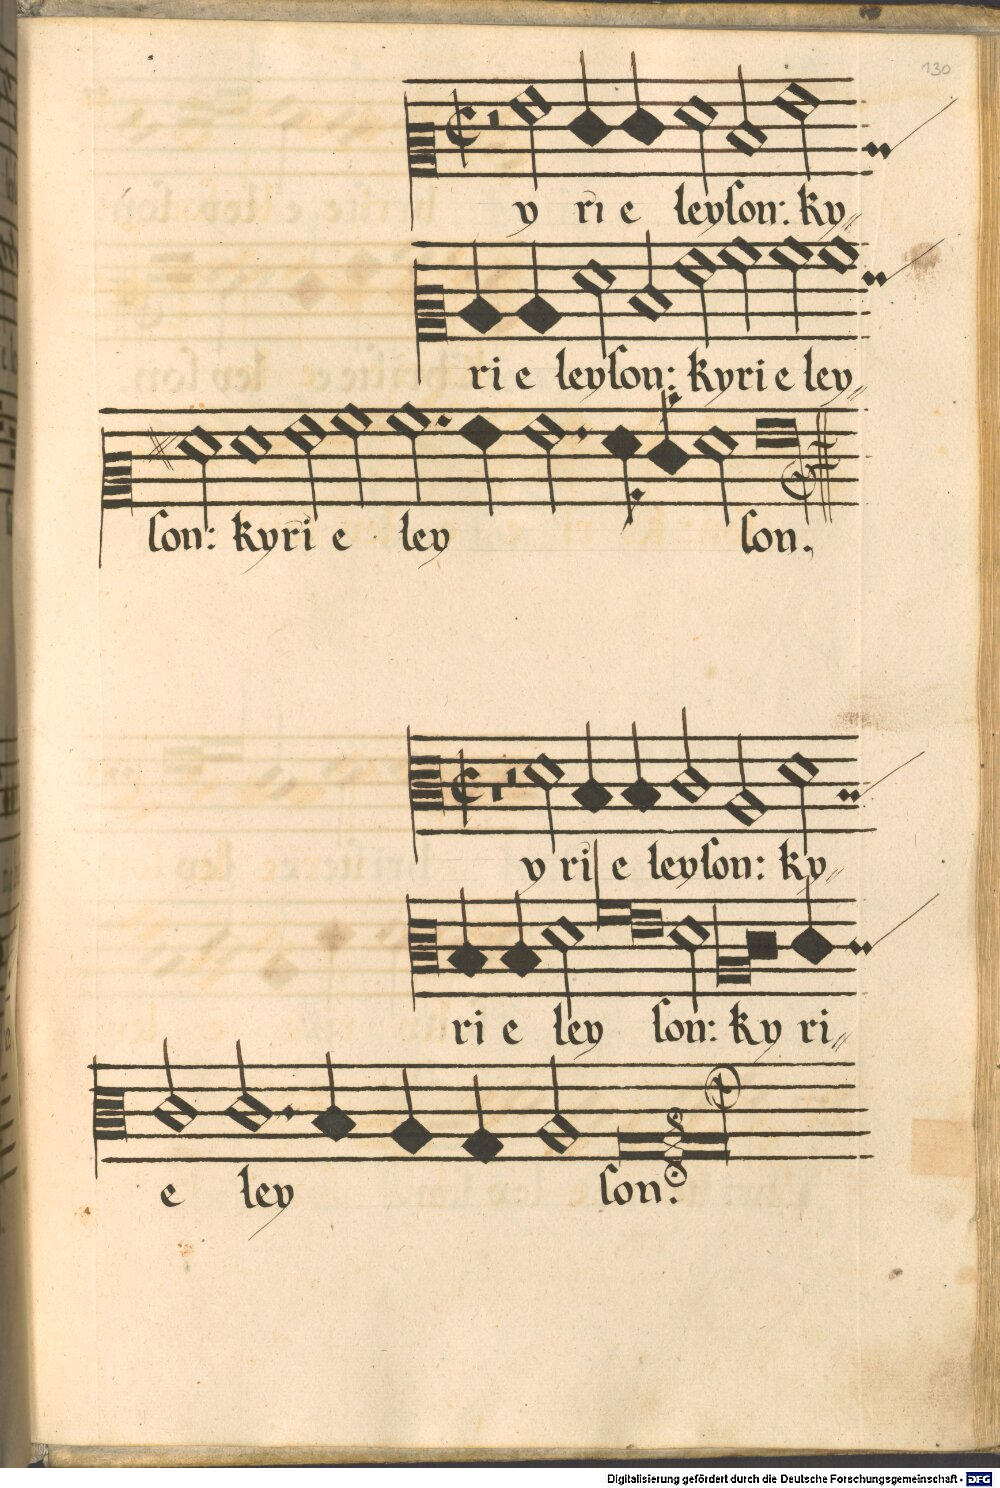 130
y ri e leyson: ky
ri e leyson: kyri e ley
son: kyri e ley son.
y ri e leyson: ky
ri e ley son: ky ri
e ley son.
Digitalisierung gefördert durch die Deutsche Forschungsgemeinschaft - DFG